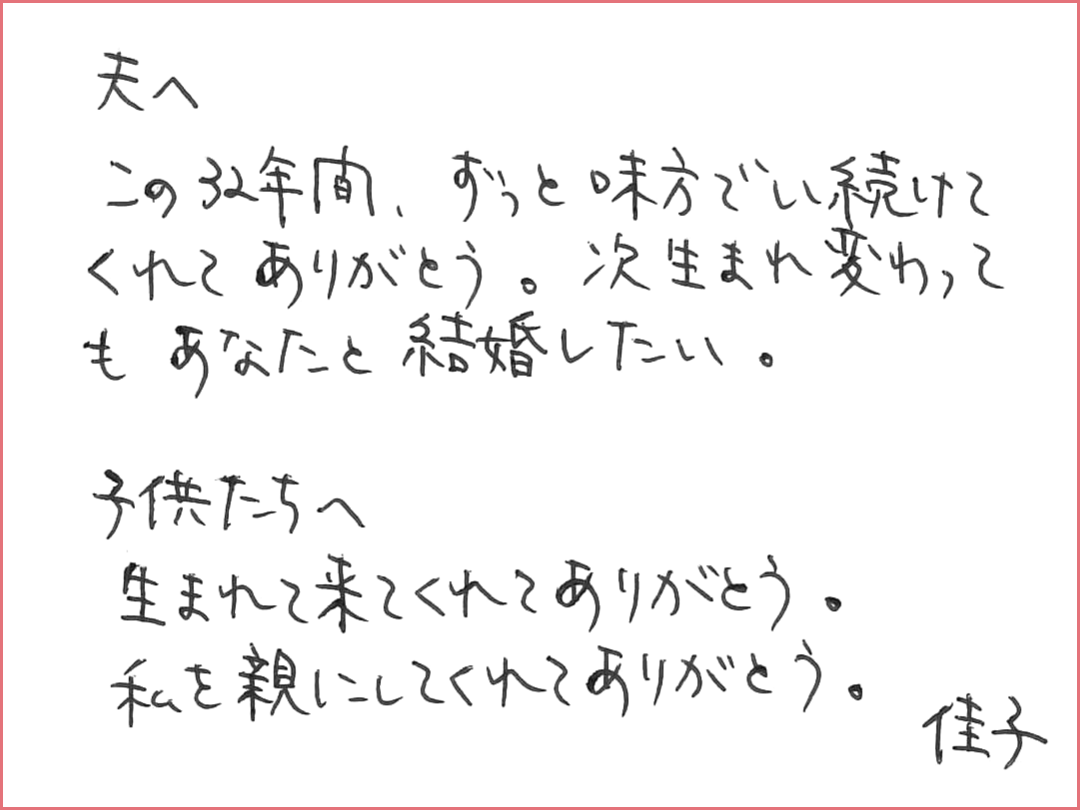 夫へ
この32年間、ずっと味方でい続けて
くれてありがとう。次生まれ変わって
もあなたと結婚したい。
子供たちへ
生まれて来てくれてありがとう。
私を親にしてくれてありがとう。
佳子